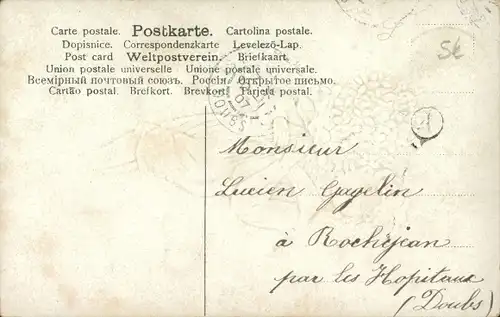 Carte postale. Postkarte. Cartolina postale.
Dopisnice. Correspondenzkarte Levelező-Lap.
Post card Weltpostverein. Briefkaart.
Union postale universelle Unione postale universale.
Всемірный почтовый союзъ. Россія Открытое письмо.
Cartão postal. Brefkort. Brevkort. Tarjeta postal.
Sk
07
Monsieur
Lucien Gagelin
à Rochejean
par les Hopitaux
(Doubs)